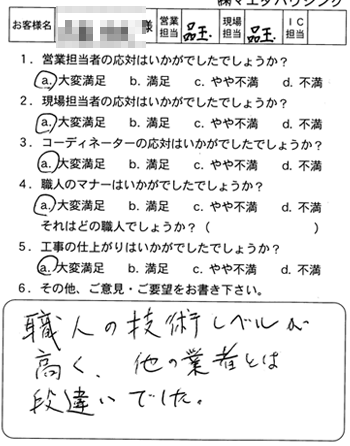 ㈱マエダハウジング
お客様名 様 営業担当 品玉. 現場担当 品玉. IC担当
1．営業担当者の応対はいかがでしたでしょうか？
a. 大変満足 b. 満足 c. やや不満 d. 不満
2．現場担当者の応対はいかがでしたでしょうか？
a. 大変満足 b. 満足 c. やや不満 d. 不満
3．コーディネーターの応対はいかがでしたでしょうか？
a. 大変満足 b. 満足 c. やや不満 d. 不満
4．職人のマナーはいかがでしたでしょうか？
a. 大変満足 b. 満足 c. やや不満 d. 不満
それはどの職人でしょうか？（ ）
5．工事の仕上がりはいかがでしたでしょうか？
a. 大変満足 b. 満足 c. やや不満 d. 不満
6．その他、ご意見・ご要望をお書き下さい。
職人の技術レベルが
高く、他の業者とは
段違いでした。